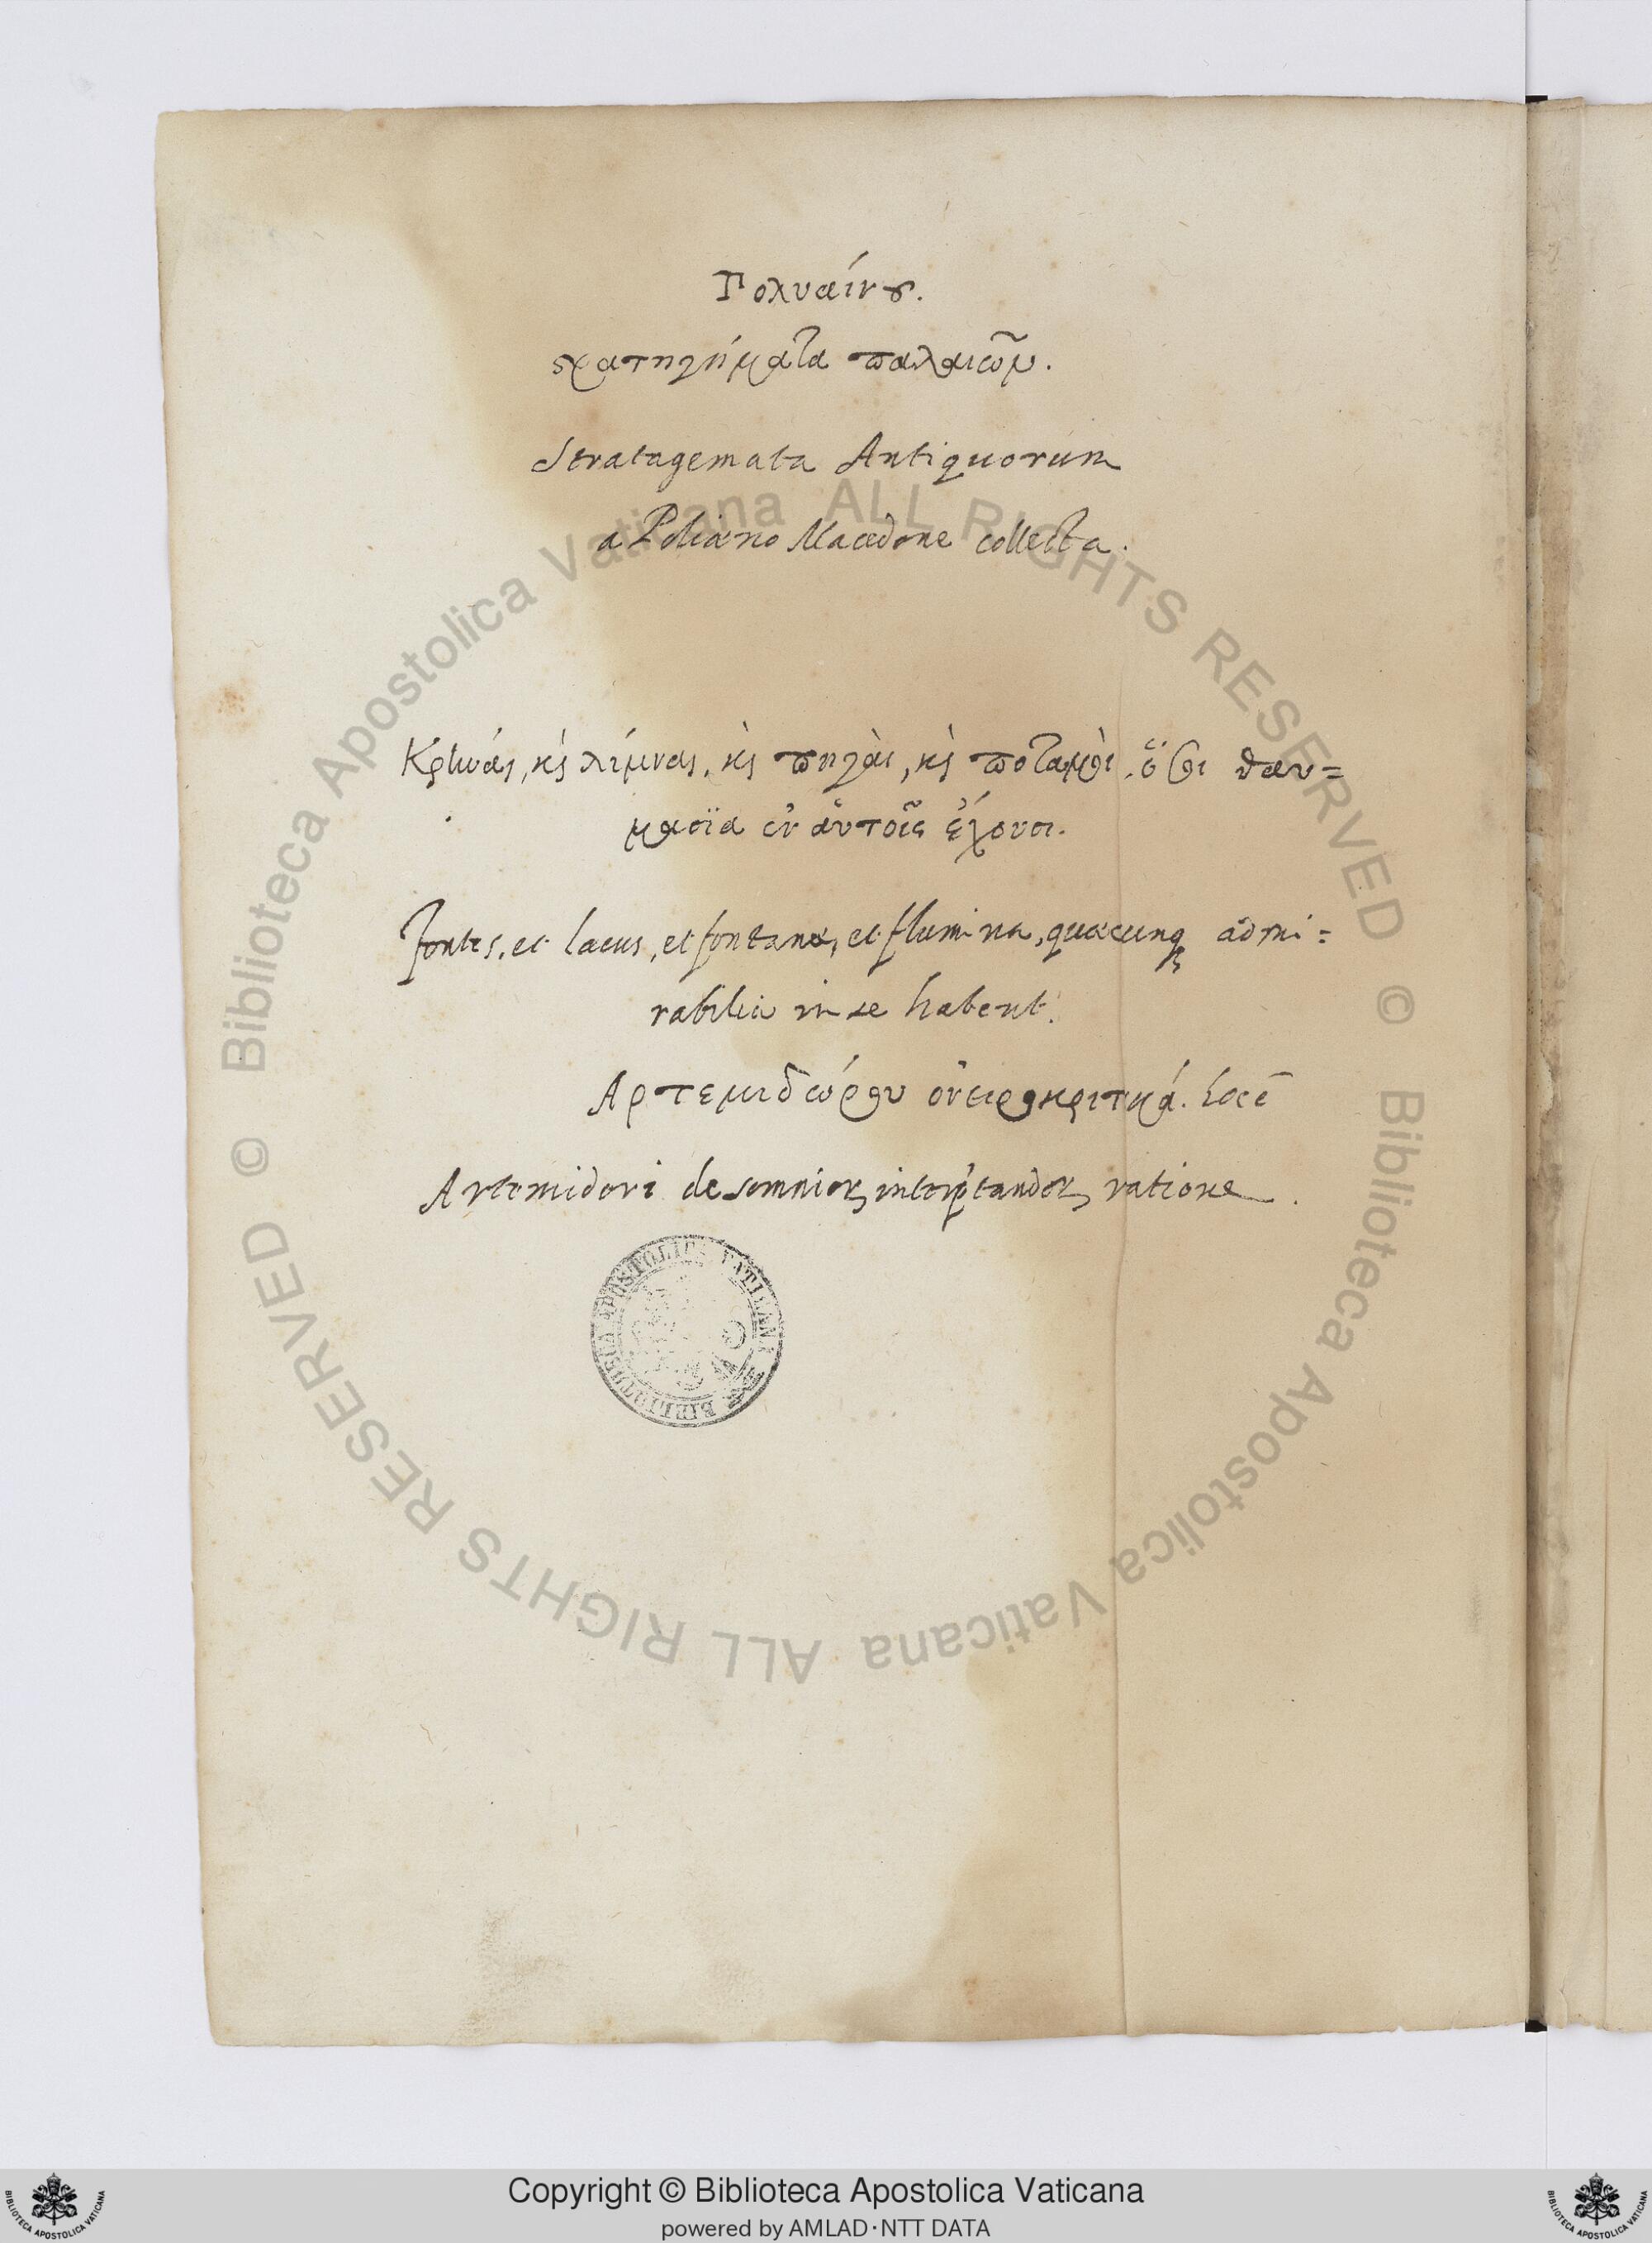 Πολυαίνȣ.
ϛρατηγήματα παλαιῶν.
Stratagemata Antiquorum
a Poliæno Macedone collecta.
Κρηνάς, κὶ λίμνας, κὶ πηγὰι, κὶ ποταμὸι, ὅσοι θαυ=
μασϊα ἐν ἀυτοῖς ἔχουσι.
fontes, et lacus, et fontanæ, et flumina, quæcunqȝ admi=
rabilia in se habent.
Αρτεμιδώρου ὀνειροκριτικά.
Artemidori de somnioꝝ interp̃tandoꝝ ratione.
BIBLIOTHECA APOSTOLICA VATICANA
© Biblioteca Apostolica Vaticana ALL RIGHTS RESERVED © Biblioteca Apostolica Vaticana ALL RIGHTS RESERVED
BIBLIOTECA APOSTOLICA VATICANA
Copyright © Biblioteca Apostolica Vaticana
powered by AMLAD·NTT DATA
BIBLIOTECA APOSTOLICA VATICANA